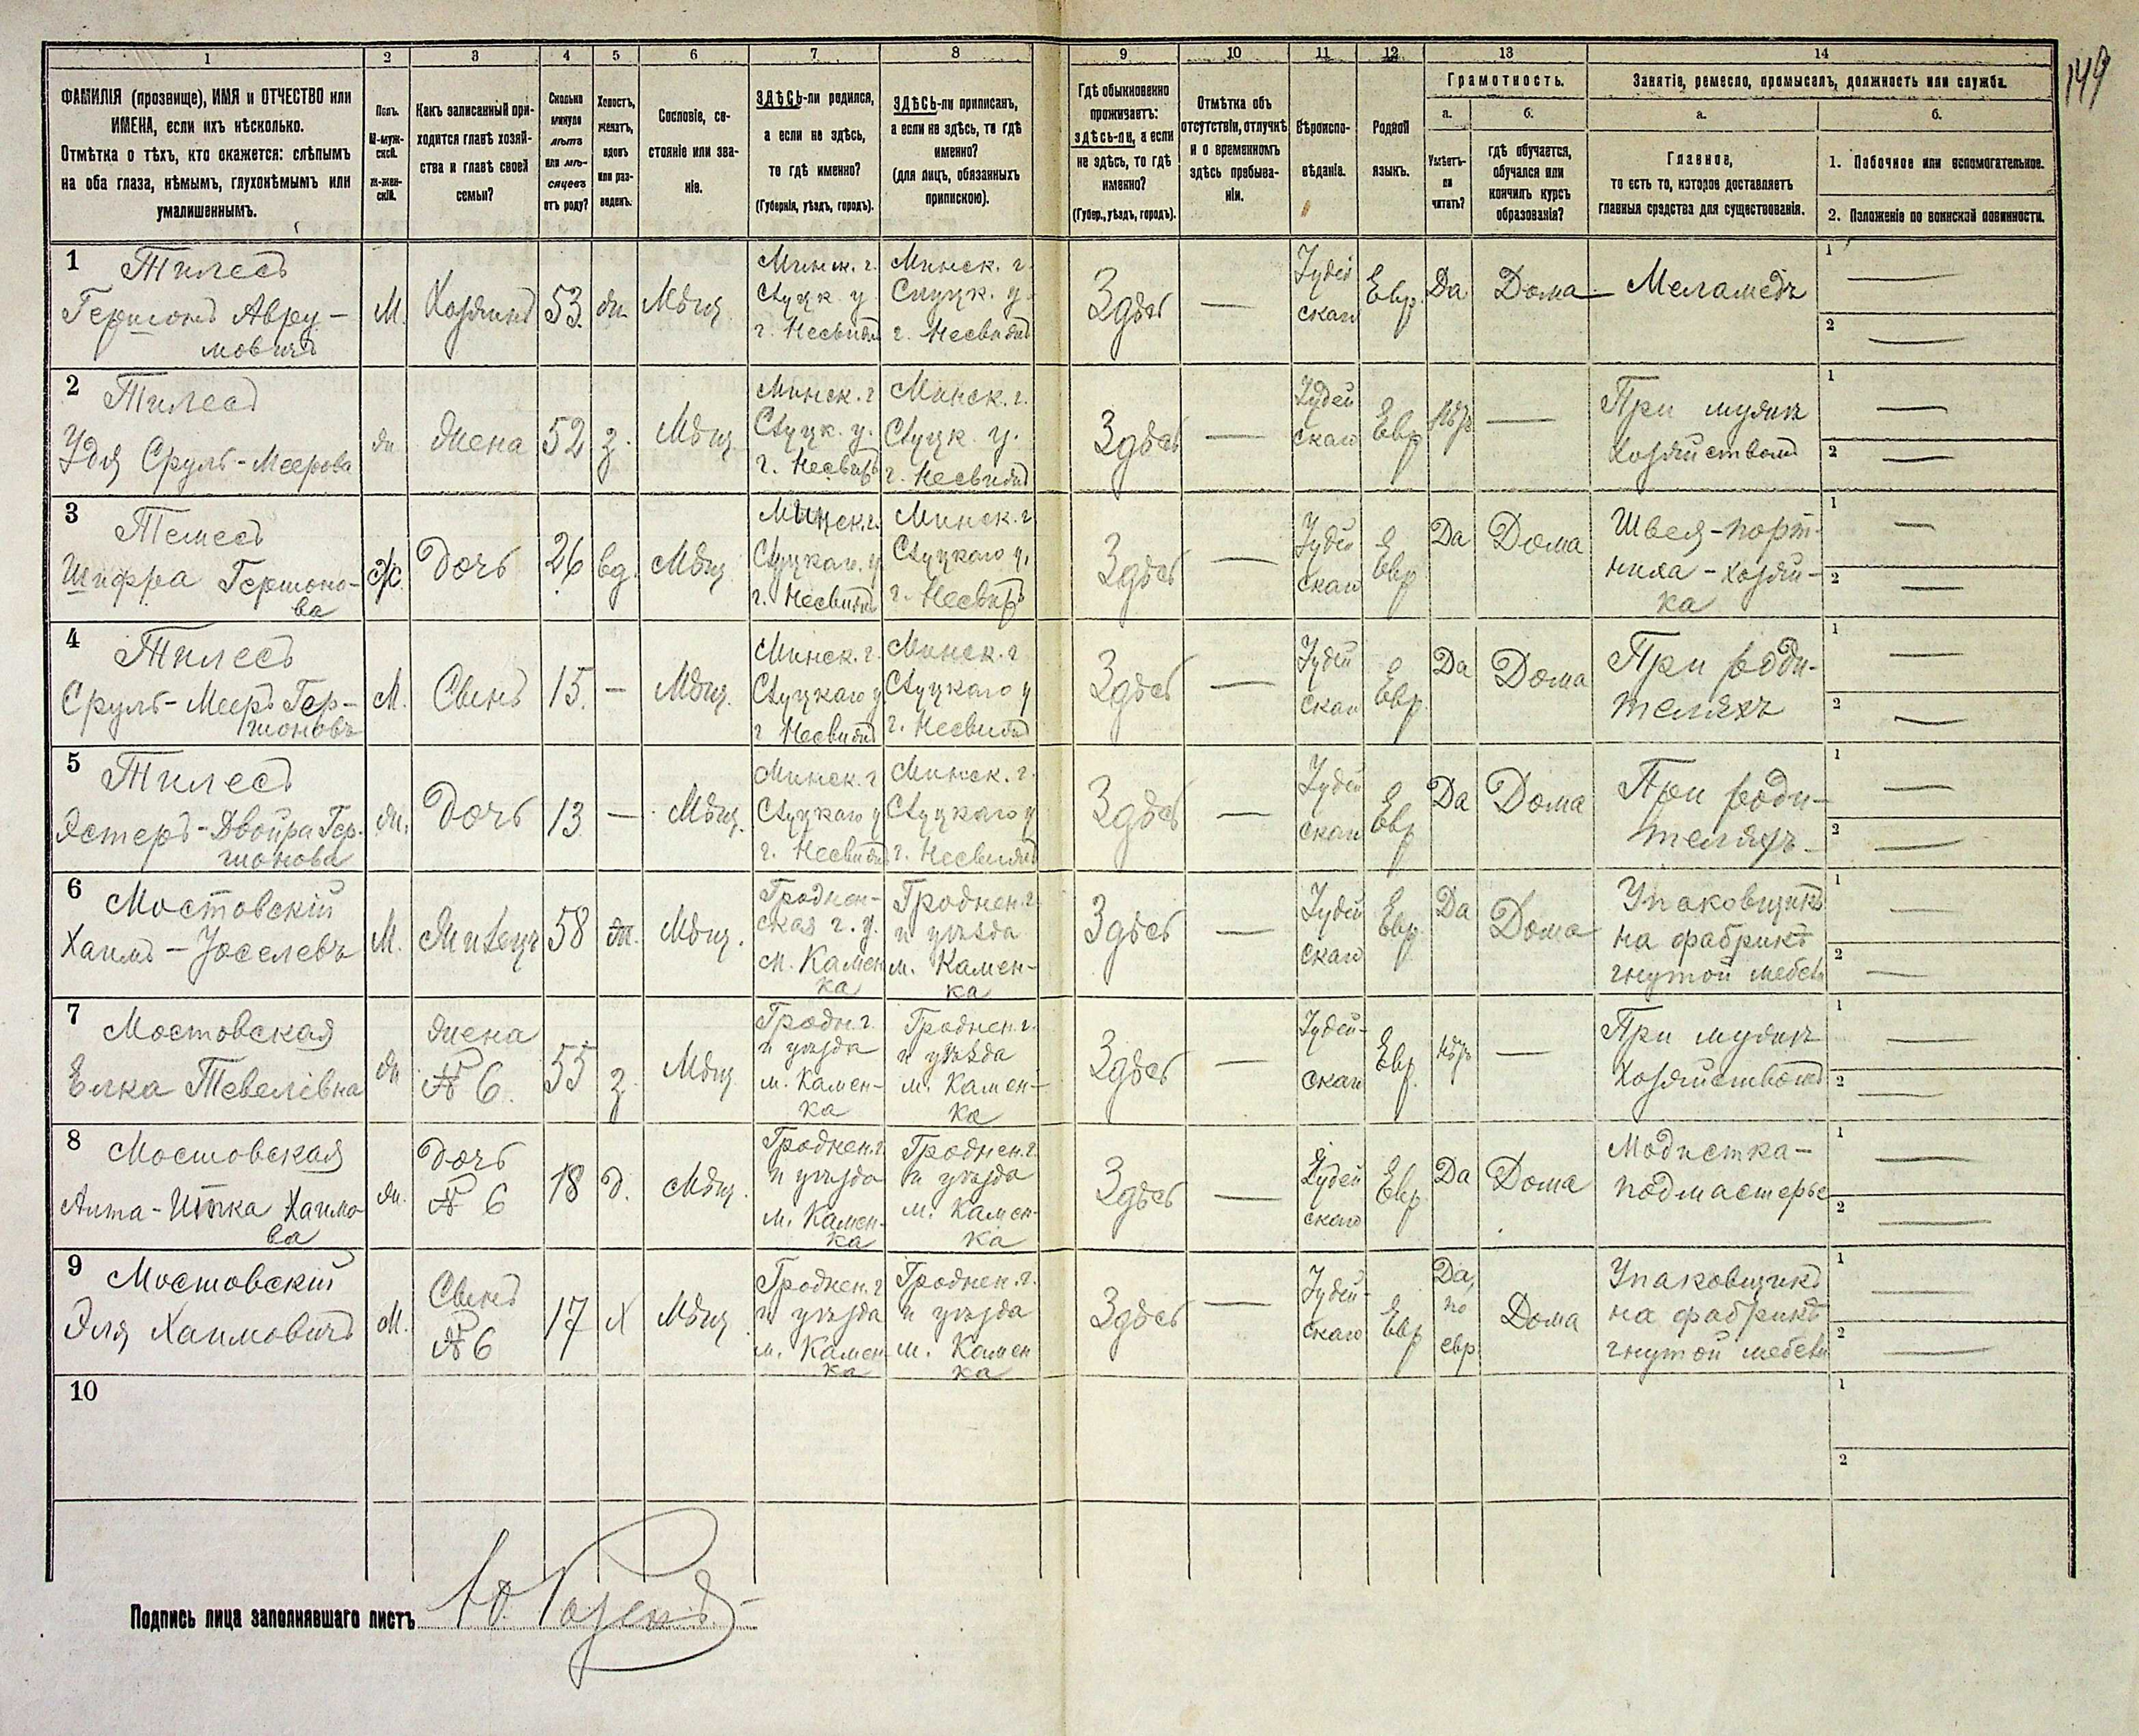 149
1 2 3 4 5 6 7 8 9 10 11 12 13 14
ФАМИЛІЯ (прозвище), ИМЯ и ОТЧЕСТВО или
ИМЕНА, если ихъ нѣсколько.
Отмѣтка о тѣхъ, кто окажется: слѣпымъ
на оба глаза, нѣмымъ, глухонѣмымъ или
умалишеннымъ.
Полъ.
М-муж-
ской.
Ж-жен-
скій.
Какъ записанный при-
ходится главѣ хозяй-
ства и главѣ своей
семьи?
Сколько
минуло
лѣтъ
или мѣ-
сяцевъ
отъ роду?
Холостъ,
женатъ,
вдовъ
или раз-
веденъ.
Сословіе, со-
стояніе или зва-
ніе.
ЗДѢСЬ-ли родился,
а если не здѣсь,
то гдѣ именно?
(Губернія, уѣздъ, городъ).
ЗДѢСЬ-ли приписанъ,
а если не здѣсь, то гдѣ
именно?
(для лицъ, обязанныхъ
припискою).
Гдѣ обыкновенно
проживаетъ:
здѣсь-ли, а если
не здѣсь, то гдѣ
именно?
(Губер., уѣздъ, городъ).
Отмѣтка объ
отсутствіи, отлучкѣ
и о временномъ
здѣсь пребыва-
ніи.
Вѣроиспо-
вѣданіе.
Родной
языкъ.
Грамотность.
а.
Умѣетъ-
ли
читать?
б.
гдѣ обучается,
обучался или
кончилъ курсъ
образованія?
Занятіе, ремесло, промыселъ, должность или служба.
а.
Главное,
то есть то, которое доставляетъ
главныя средства для существованія.
б.
1. Побочное или вспомогательное.
2. Положеніе по воинской повинности.
1 Тилесъ
Гершонъ Авру-
мовичъ
М.
Хозяинъ
53.
жн
Мѣщ
Минск. г.
Слуцк у
г. Несвижъ
Минск. г.
Слуцк. у.
г. Несвижъ
Здѣсь
—
Іудей
скаго
Евр.
Да
Дома
Меламедъ
1 —
2 —
2 Тилесъ
Удя Сруль-Меерова
жн
жена
52
з.
Мѣщ
Минск. г
Слуцк. у.
г. Несвижъ
Минск. г.
Слуцк. у.
г. Несвижъ
Здѣсь
—
Іудей
скаго
Евр
Нѣтъ
—
При мужѣ
хозяйствомъ
1 —
2 —
3 Темесъ
Шифра Гершоно-
ва
Ж.
Дочь
26
вд.
Мѣщ
Минск. г.
Слуцкаго. у
г. Несвижъ
Минск. г
Слуцкаго у,
г. Несвижъ
Здѣсь
—
Іудей
скаго
Евр
Да
Дома
Швея-порт-
ниха-хозяй-
ка
1 —
2 —
4 Тилесъ
Сруль-Мееръ Гер-
шоновъ
М.
Сынъ
15.
—
Мѣщ.
Минск. г.
Слуцкаго у
г Несвижъ
Минск. г
Слуцкаго у
г. Несвижъ
Здѣсь
—
Іудей
скаго
Евр.
Да
Дома
При роди-
теляхъ
1 —
2 —
5 Тилесъ
Эстеръ-Двойра Гер-
шонова
жн.
Дочь
13
—
Мѣщ.
Минск. г
Слуцкаго у
г. Несвижъ
Минск. г.
Слуцкаго у
г. Несвижъ
Здѣсь
—
Іудей
скаго
Евр
Да
Дома
При роди-
теляхъ
1 —
2 —
6 Мостовскій
Хаимъ-Іоселевъ
М.
Жилецъ
58
ж.
Мѣщ.
Гроднен-
ская г. у.
м. Камен
ка
Гроднен. г
и уѣзда
м. Камен-
ка
Здѣсь
—
Іудей
скаго
Евр
Да
Дома
Упаковщикъ
на фабрикѣ
гнутой мебели
1 —
2 —
7 Мостовская
Елка Тевелівна
жн
жена
№ 6.
55
з.
Мѣщ
Гродн. г.
и уѣзда
м. Камен-
ка
Гроднен. г.
и уѣзда
м. Камен-
ка
Здѣсь
—
Іудей-
скаго
Евр.
Нѣтъ
—
При мужѣ
хозяйствомъ
1 —
2 —
8 Мостовская
Алта-Итка Хаимо
ва
жн.
Дочь
№ 6
18
д.
Мѣщ.
Гроднен. г.
и уѣзда
м. Камен-
ка
Гроднен. г.
и уѣзда
м. Камен-
ка
Здѣсь
—
Іудей
скаго
Евр
Да
Дома
Модистка-
подмастерье
1 —
2 —
9 Мостовскій
Эля Хаимовичъ
М.
Сынъ
№ 6
17
Х
Мѣщ.
Гроднен. г
и уѣзда
м. Камен
ка
Гроднен. г.
и уѣзда
м. Камен
ка
Здѣсь
—
Іудей-
скаго
Евр
Да,
по
евр
Дома
Упаковщикъ
на фабрикѣ
гнутой мебели
1 —
2 —
10
1
2
Подпись лица заполнявшаго листъ